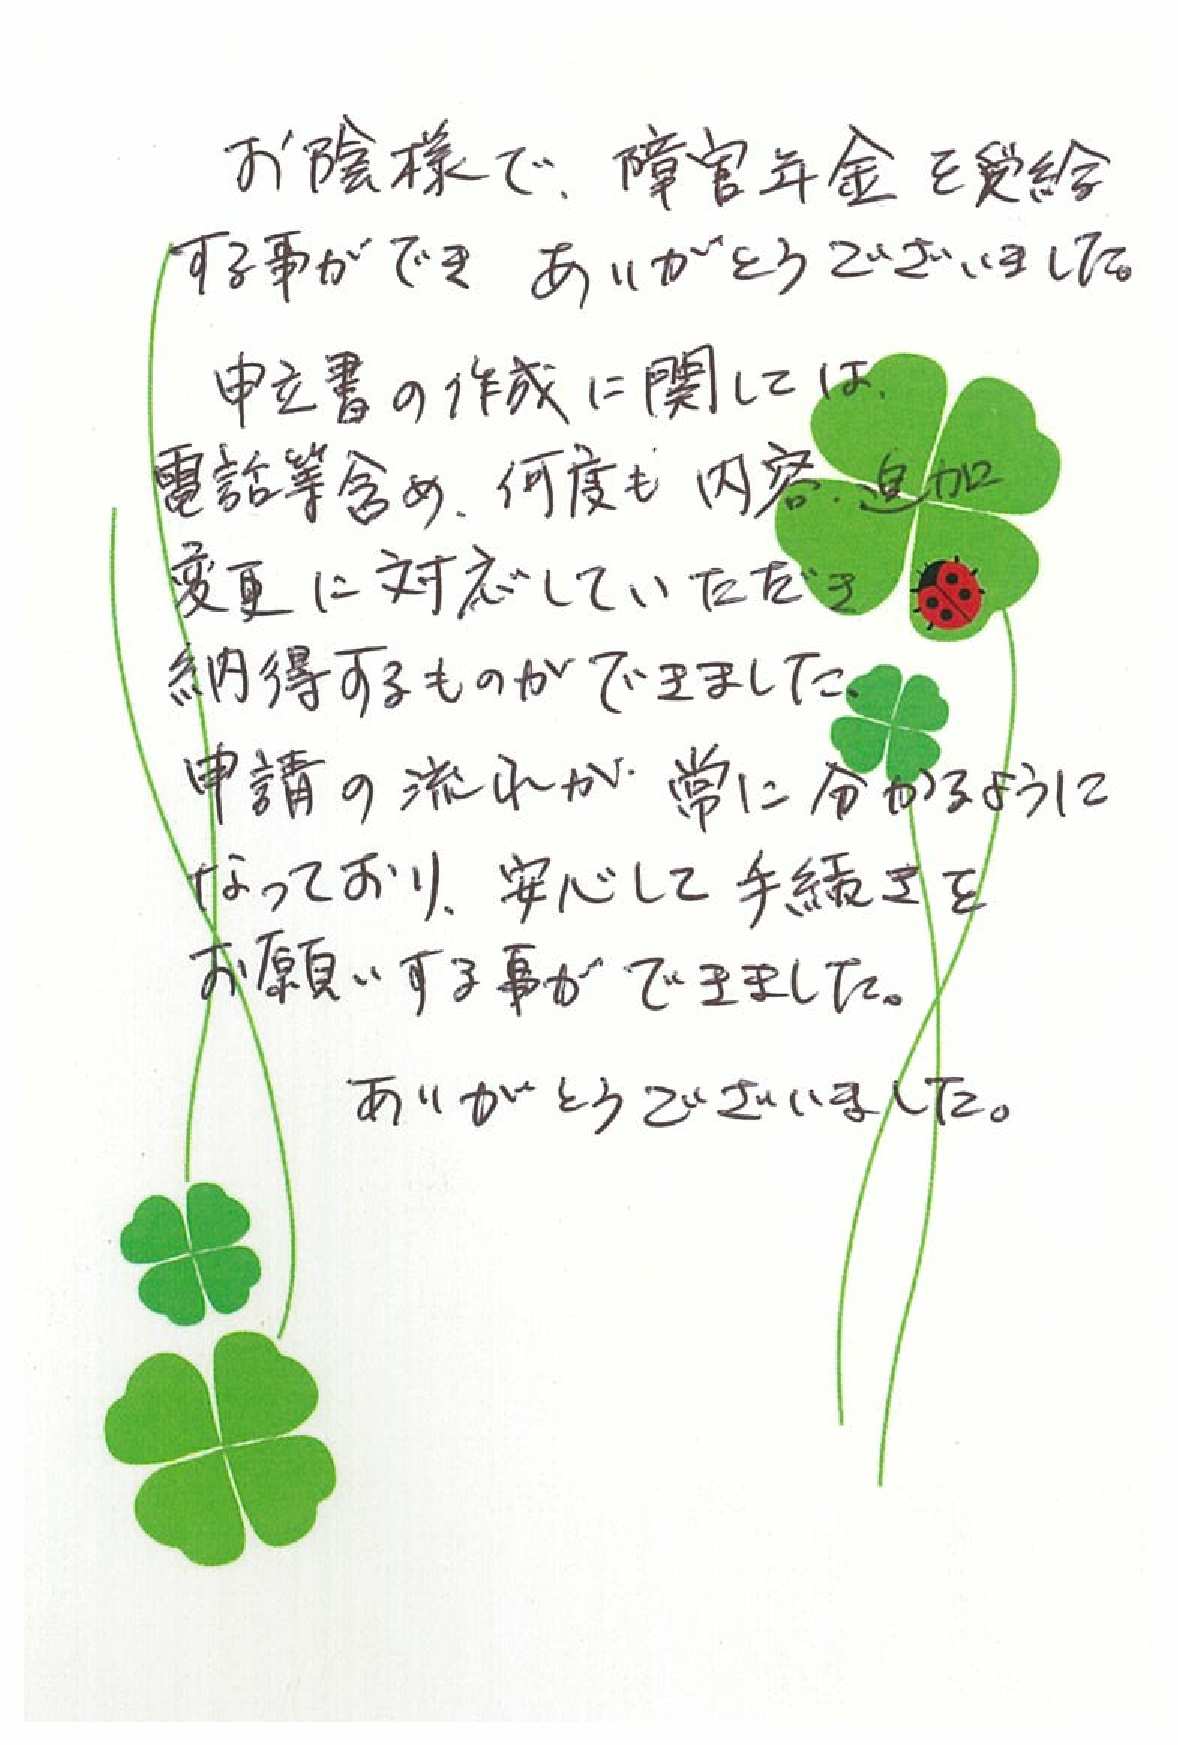 お陰様で、障害年金を受給
する事ができ ありがとうございました。
申立書の作成に関しては、
電話等含め、何度も内容、追加
変更に対応していただき
納得するものができました、
申請の流れが 常に分かるように
なっており、安心して手続きを
お願いする事ができました。
ありがとうございました。